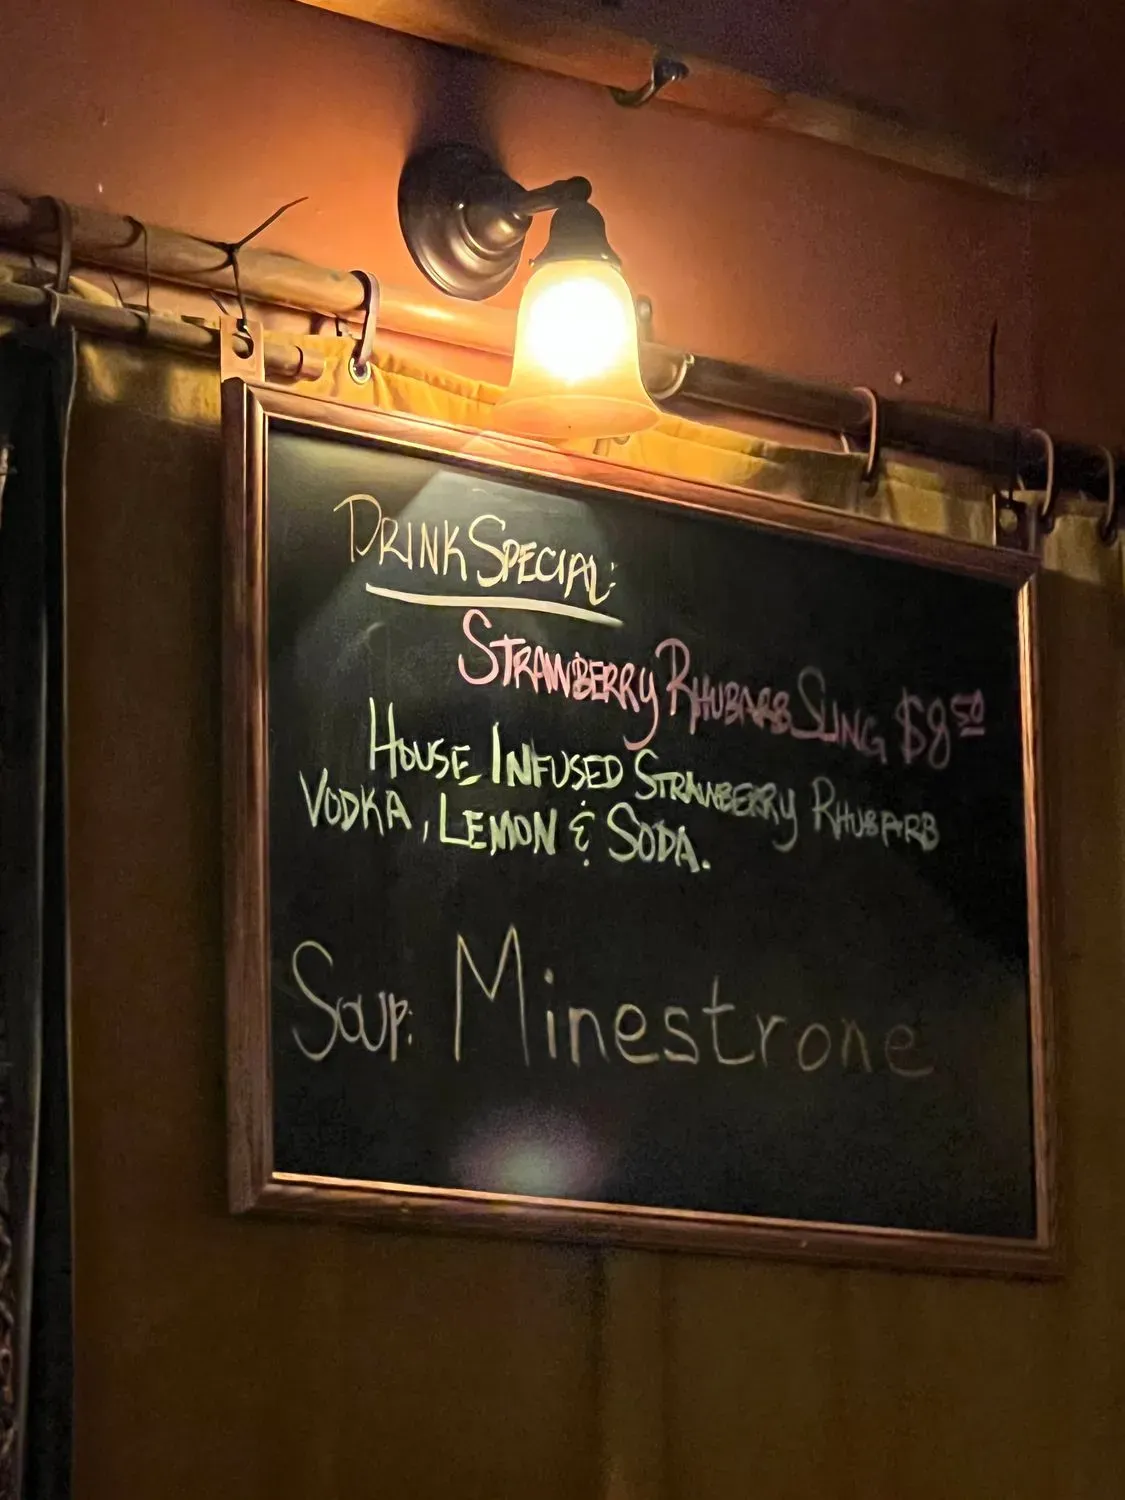 DRINK SPECIAL:
STRAWBERRY RHUBARB SLING $8 50
HOUSE INFUSED STRAWBERRY RHUBARB
VODKA, LEMON & SODA.
SOUP: Minestrone